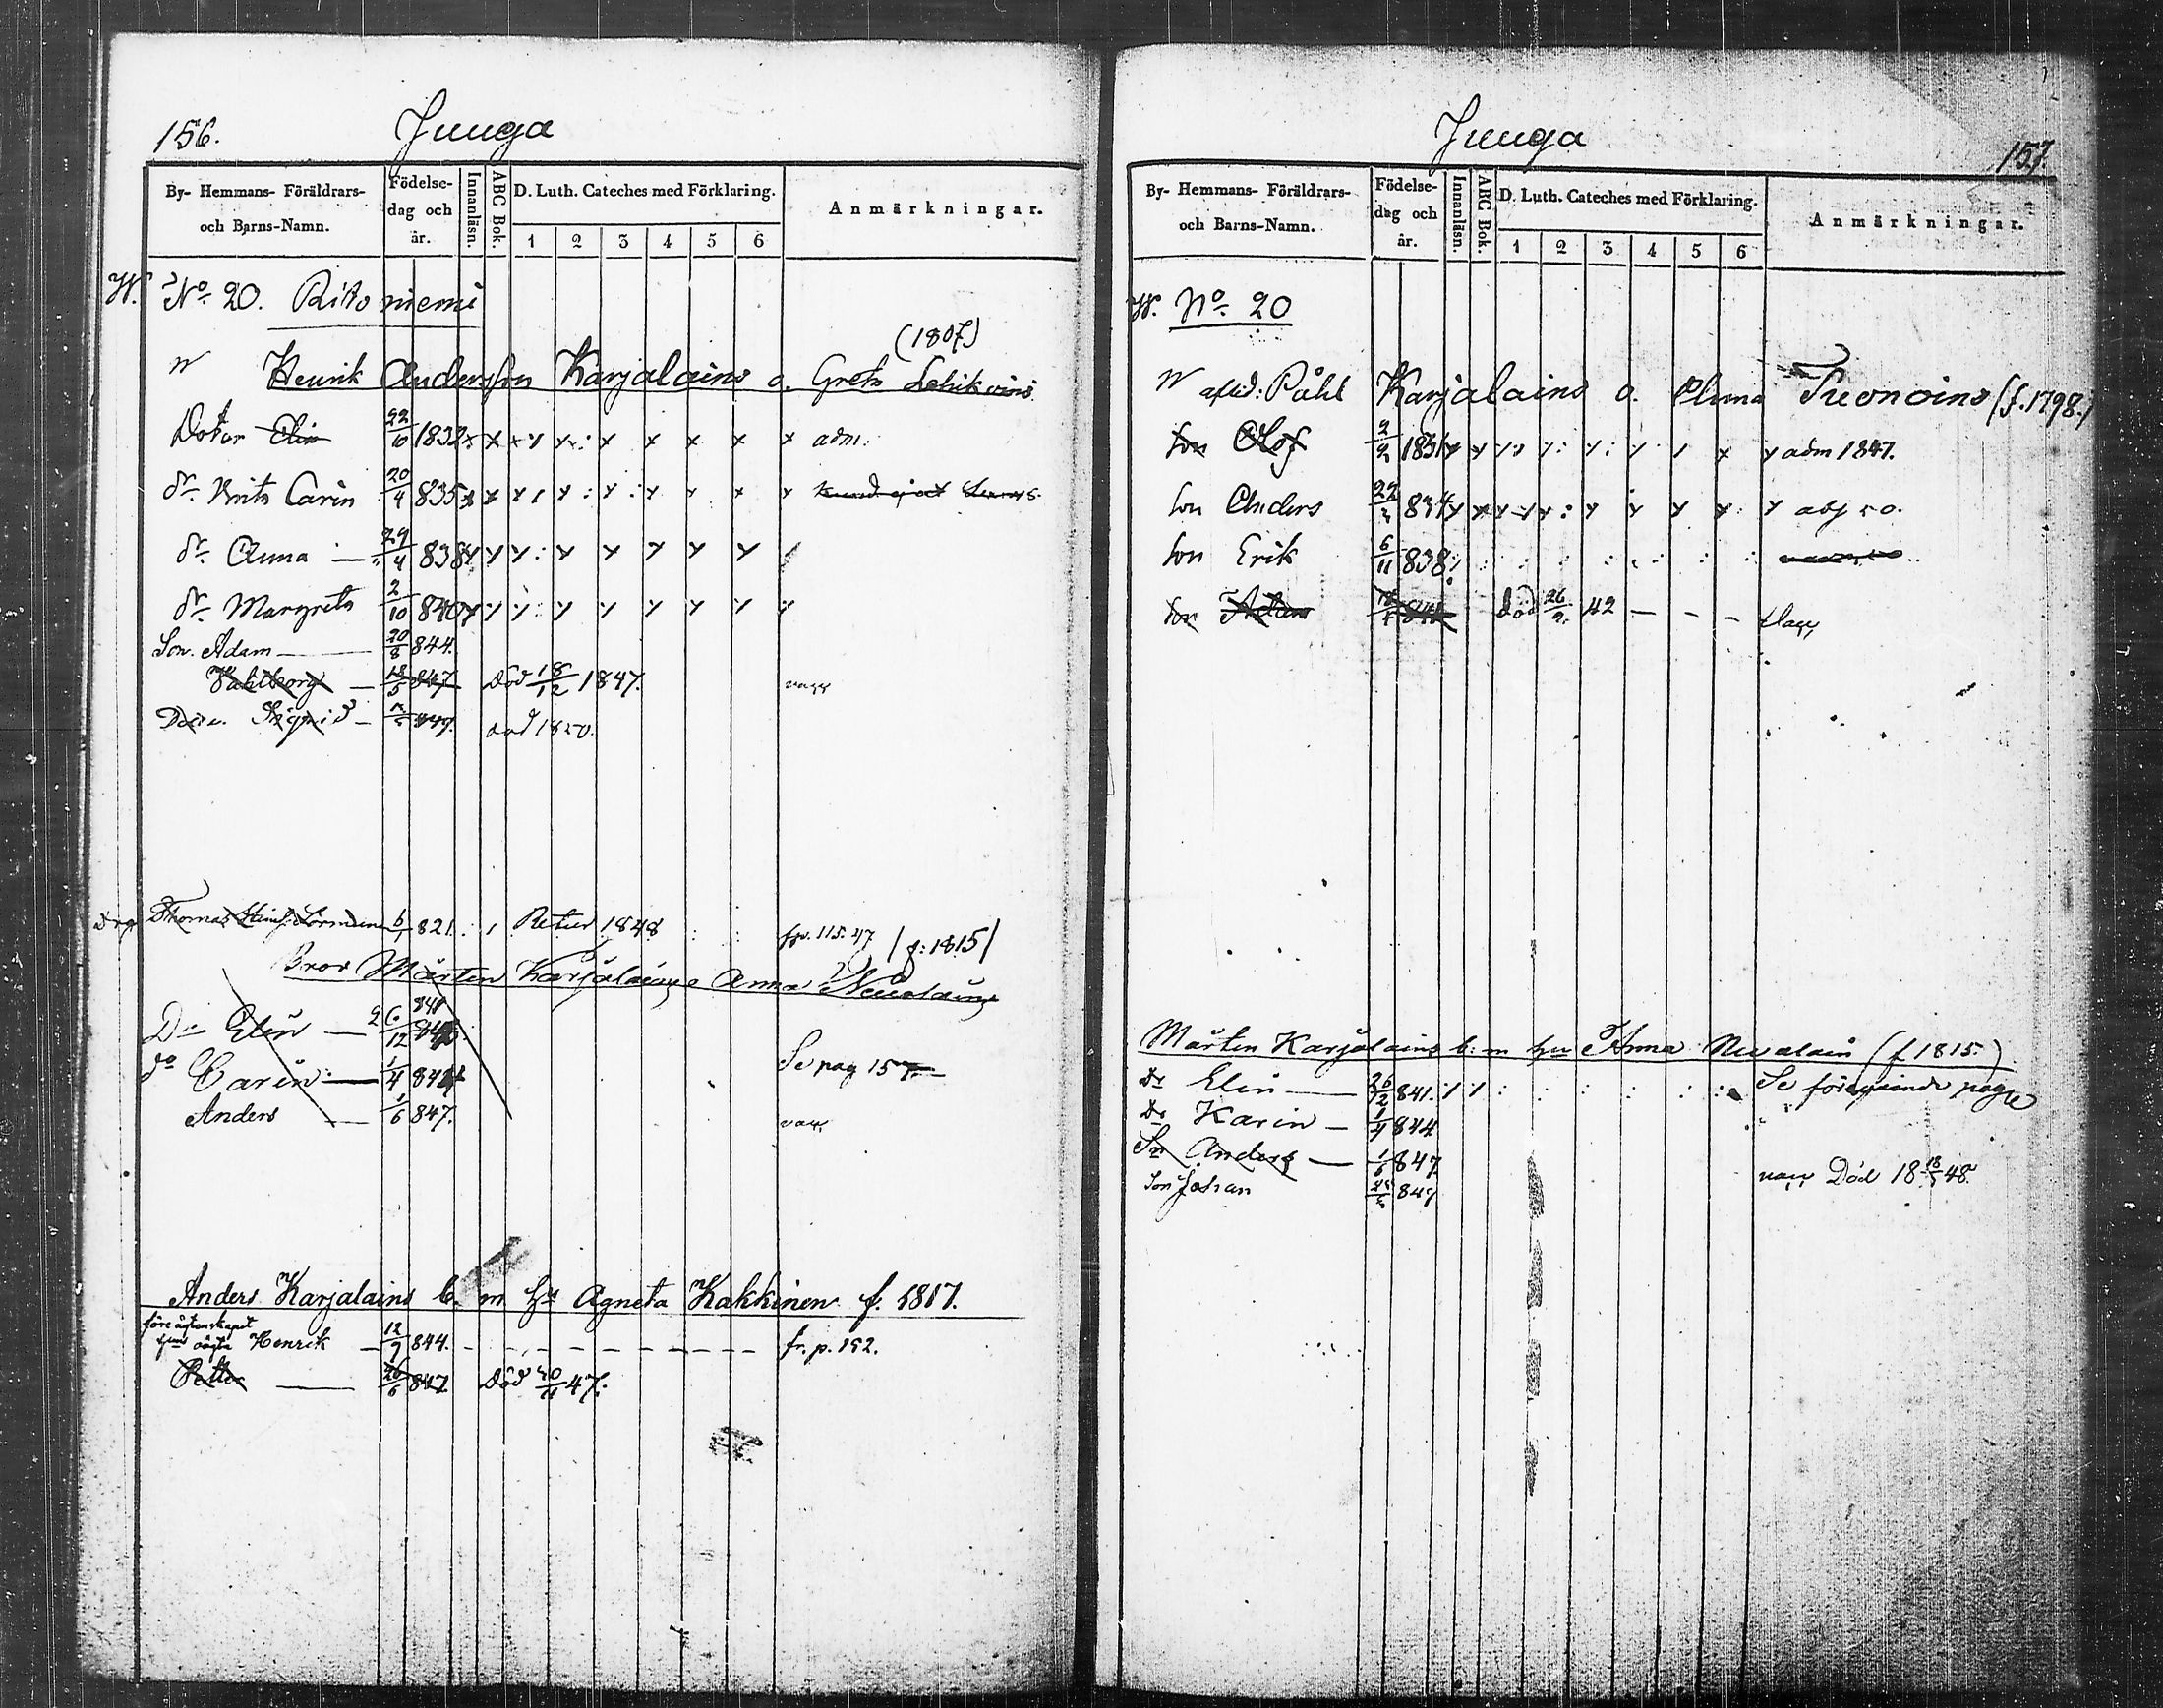 156.
Juuga
By- Hemmans- Föräldrars- och Barns-Namn.
Födelse-dag och år.
Innanläsn.
ABC Bok.
D. Luth. Cateches med Förklaring.
1 2 3 4 5 6
Anmärkningar.
W. No 20. Ritoniemi
(1807)
Henrik Andersson Karjalains o. Greta
Dotter Elin 22/6 1832 x x x x x x x x x adm.
dr. Brita Carin 20/4 835
dr. Anna 29/4 838
dr. Margreta 2/10 840
Son. Adam 20/8 844.
Wahlborg 18/5 847 Död 18/12 1847.
Sigrid 849. död 1850.
Thomas 821 Retur 1848 115. 47
/f: 1815/
Bror Mårten Karjalains o Anna
Dr Elin 26/12 841
do Carin 1/4 844 Se pag 157
Anders 1/6 847.
Anders Karjalains b. m. hu Agneta Kakkinen f. 1817.
före ägtenskapet
oägta Henrik 12/9 844. fr. p. 152.
Petter 26/6 847 Död 11 47.
Juuga
157.
By- Hemmans- Föräldrars- och Barns-Namn.
Födelse-dag och år.
Innanläsn.
ABC Bok.
D. Luth. Cateches med Förklaring.
1 2 3 4 5 6
Anmärkningar.
W. No 20
aflid: Påhl Karjalains o. Anna (f. 1798.)
Son Olof 2/2 1831 adm 1847.
Son Anders 834
Son Erik 6/11 838
Son Adam Död 26/2 42
Mårten Karjalains b: m hu Anna (f 1815.)
Dr Elin 26/12 841. Se föregående page
Dr Karin 1/4 844
Sn Anders 1/6 847 Död 18 48.
Son Johan 849